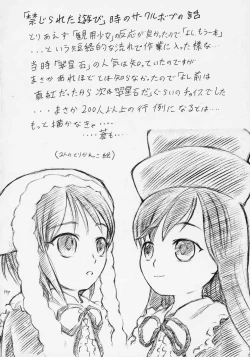 「禁じられた遊び」時のサークルポツの話
とりあえず「観用少女」の反応が良かったので「よしもう一本」
...という短絡的な流れで作業に入った様な...
当時「翠星石」の人気は知っていたのですが
まさかあれほどとは知らなかったので「よし前は
真紅だったから次は翠星石だ」ぐらいのチョイスでした
...まさか200人以上の行列になるとは...
もっと描かなきゃ...
...蒼も...